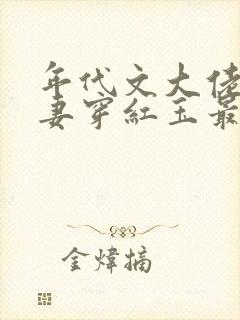 年代文大佬
妻穿紅玉最
金煒摘